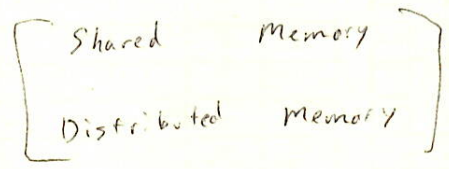 Shared Memory
Distributed Memory